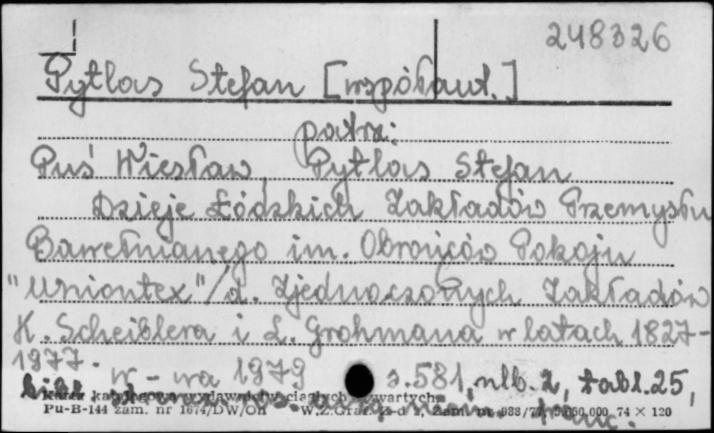 248326
Pytlas Stefan [współaut.]
patrz:
Puś Wiesław, Pytlas Stefan
Dzieje Łódzkich Zakładów Przemysłu
Bawełnianego im. Obrońców Pokoju
"Uniontex"/d. Zjednoczonych Zakładów
K. Scheiblera i L. Grohmana w latach 1827-
1977.
W-wa 1979 s. 581, nlb. 2, tabl. 25,
bibl. franc.
Karta katalogowa wydawnictw ciągłych zwartych
Pu-B-144 zam. nr 1674/DW/Oh W.Z.Graf. Z-d 2, Zam. nr 988/77, 000 74 × 120